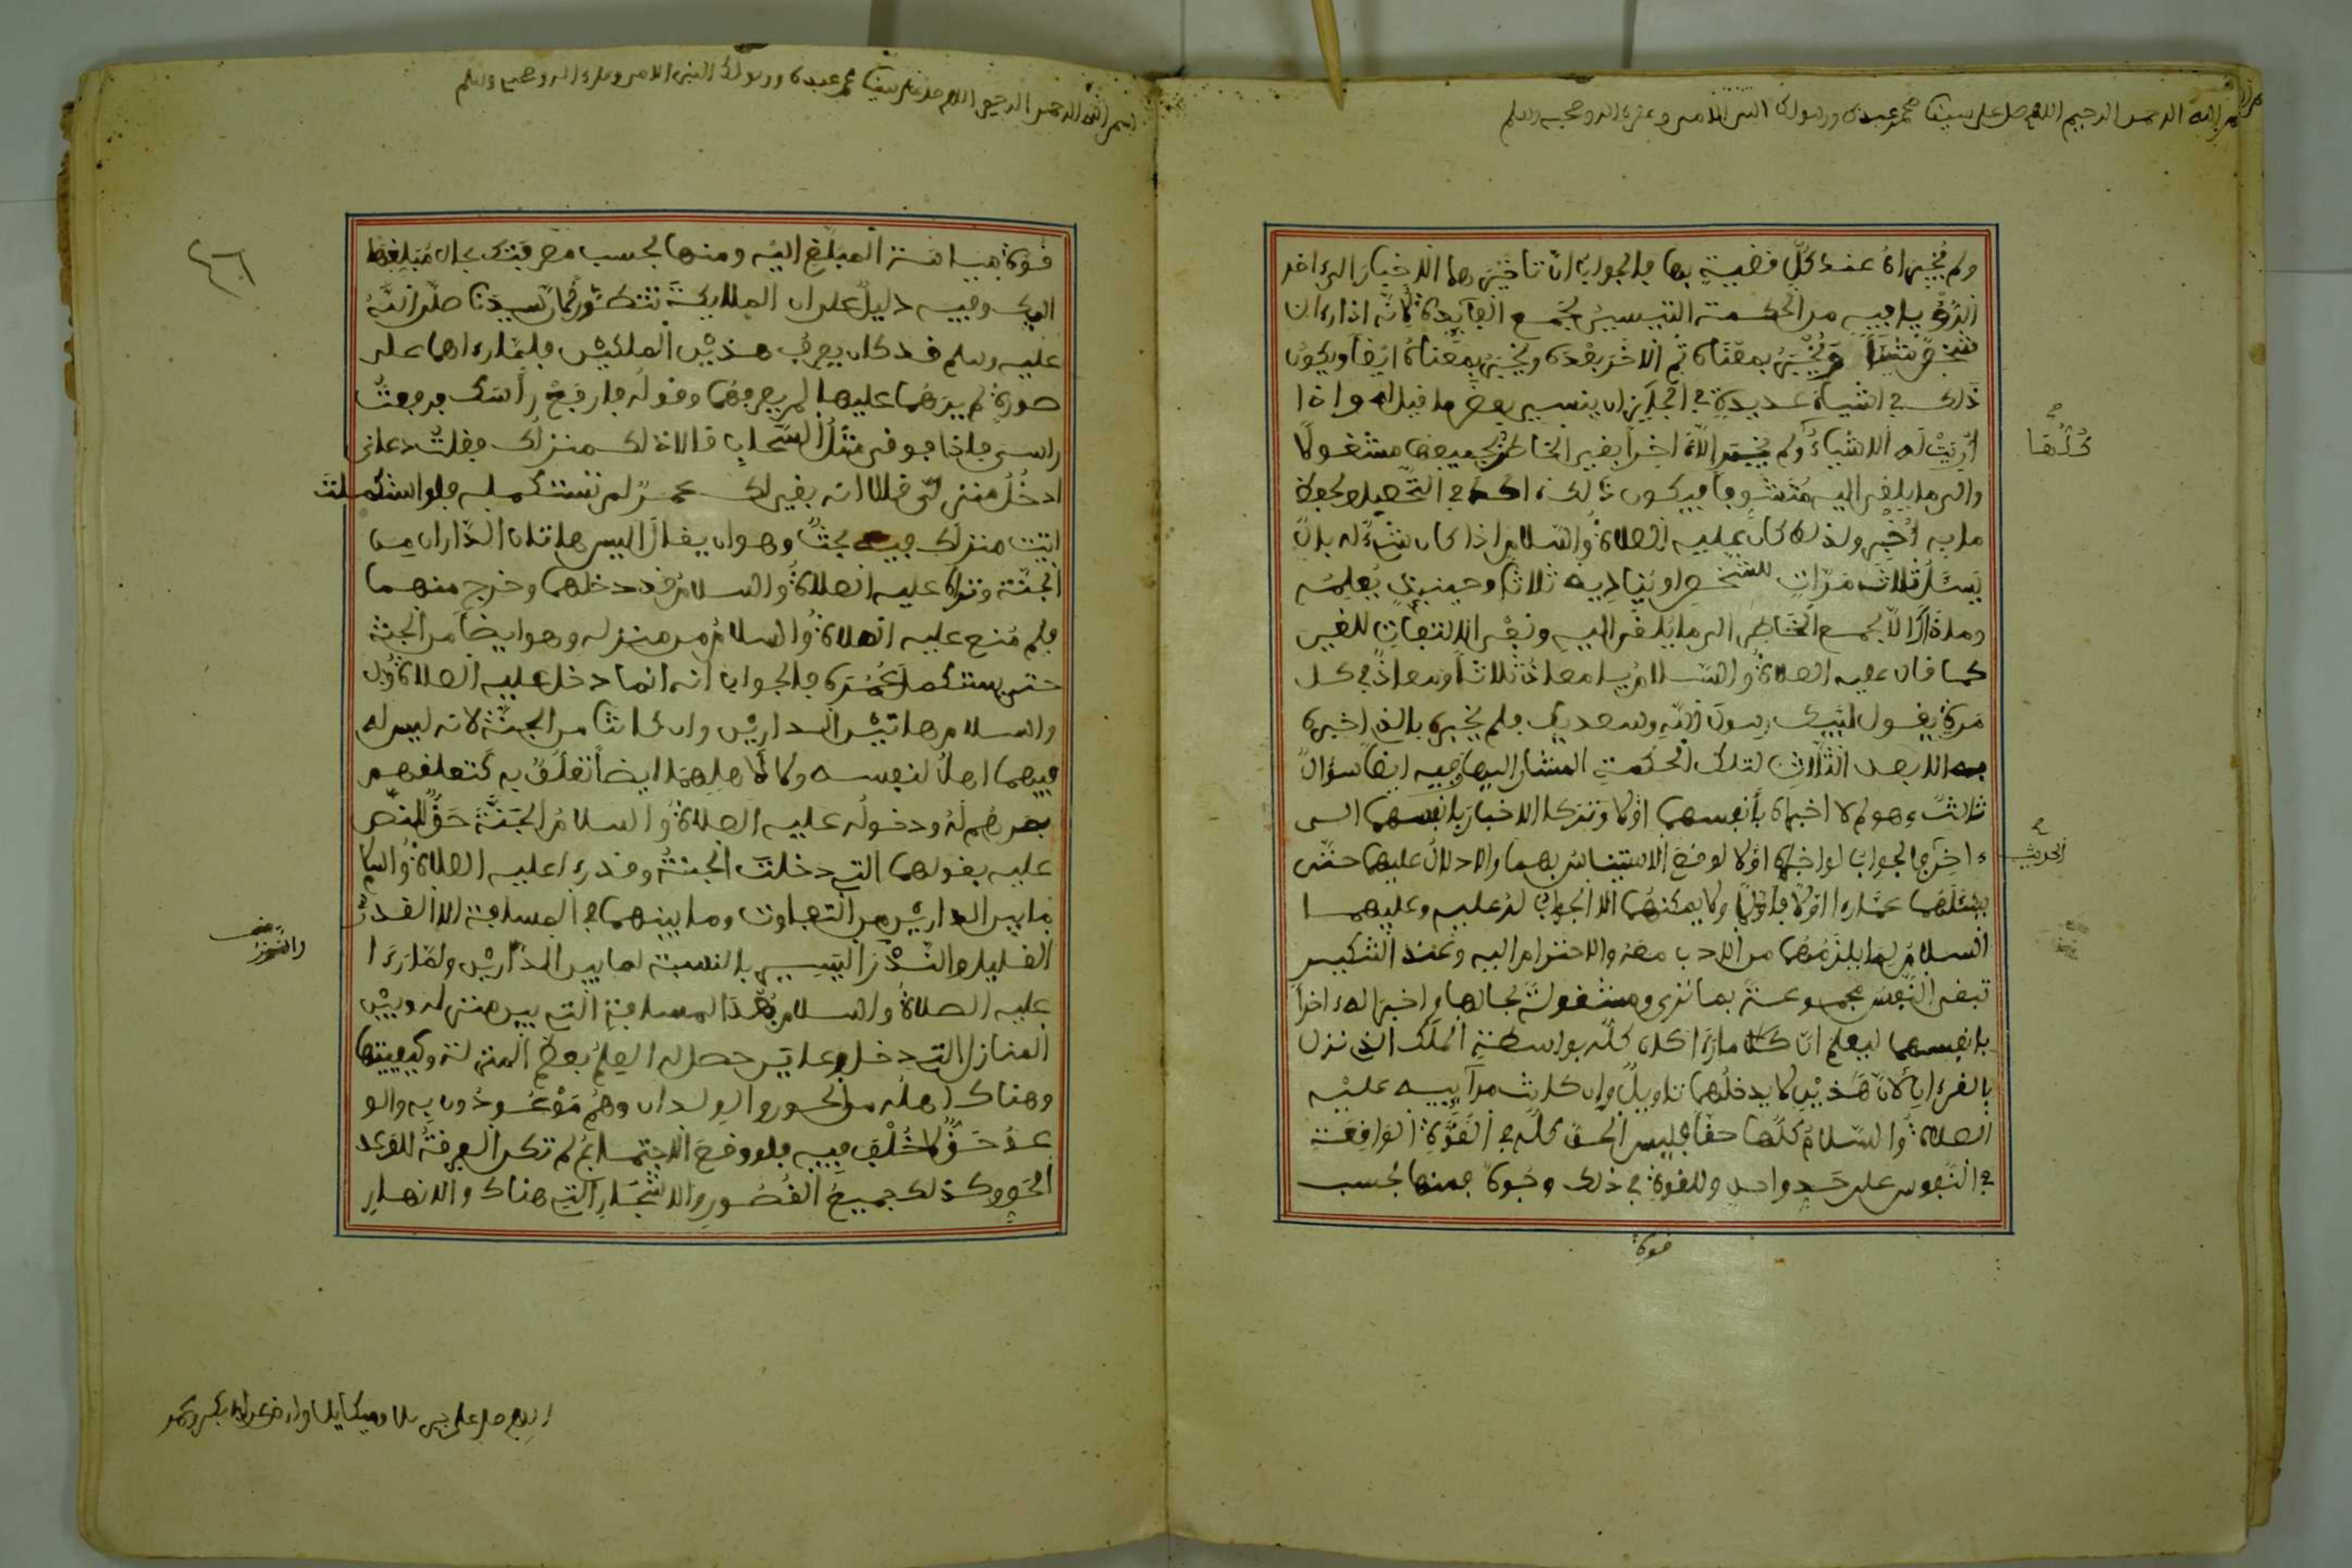 بسم الله الرحمن الرحيم اللهم صل على سيدنا محمد عبدك ورسولك النبي الامي وعلى اله وصحبه وسلم
ولم يخبراه عند كل قضية بها فالجواب ان تاخيرهما الاخبار الى اخر
الرؤيا فيه من الحكمة التيسير لجمع الفايدة لانه اذا رءا ان
شخص شيئا ويخبر بمعناه ثم الاخر بعده ويخبر بمعناه ايضا ويكون
ذلك في اشياء عديدة فالجايز ان ينسى بعض ما قيل له واذا
اريت له الاشياء كلها ولم يخبر الا اخرا بقي الخاطر بجميعها مشغولا
والى ما يلقى اليه متشوفا فيكون ذلك اكد في التحصيل لجميع
ما به اخبر ولذلك كان عليه الصلاة والسلام اذا كان شيء له بال
يسئل ثلاث مرات للشخص او يناديه ثلاثا وحينئذ يعلمه
وما ذاك الا لجمع الخاطر الى ما يلقى اليه ونفي الالتفات للغير
كما قال عليه الصلاة والسلام يا معاذ ثلاثا ومعاذ في كل
مرة يقول لبيك رسول الله وسعديك فلم يخبره بالذي اخبره
به الا بعد الثلاث لتلك الحكمة المشار اليها وفيه ايضا سؤال
ثالث وهو لم لا اخبراه بأنفسهما اولا وتركا الاخبار بانفسهما الى
ءاخر الحديث فالجواب لو اخبراه اولا لوقع الاستيناس بهما والادلال عليهما حتى
يسئلهما عما رءا اولا فاولا ولا يمكنهما الا الجواب له عليه وعليهما
السلام لما يلزمهما من الادب معه والاحترام اليه وعند التنكير
تبقى النفس مجموعة بما ترى ومشغولة بحالها واخبراه اخرا
بانفسهما ليعلم ان كل ما رءا كان كله بواسطة الملك الذي نزل
بالقرءان لان هذين لا يدخلهما تاويل وان كانت مراييه عليه
الصلاة والسلام كلها حقا فليس الحق كله في القوة الواقعة
في النفوس على حد واحد وللقوة في ذلك وجوه فمنها بحسب
قوة
بسم الله الرحمن الرحيم اللهم صل على سيدنا محمد عبدك ورسولك النبي الامي وعلى اله وصحبه وسلم
قوة ميامنة المبلغ اليه ومنها بحسب معرفتك بحال مبلغها
اليك وفيه دليل على ان الملايكة تتطور لان سيدنا صلى الله
عليه وسلم قد كان يعرف هذين الملكين فلما رءاهما على
صورة لم يرهما عليها لم يعرفهما وقوله فارفع رأسك فرفعت
راسي فاذا فوقي مثل السحاب قالا ذلك منزلك فقلت دعاني
ادخل منزلي قالا انه بقي لك عمر لم تستكمله فلو استكملت
اتيت منزلك فيه بحث وهو ان يقال اليس هاتان الداران من
الجنة ونراه عليه الصلاة والسلام قد دخلهما وخرج منهما
فلم منع عليه الصلاة والسلام من منزله وهو ايضا من الجنة
حتى يستكمل عمره فالجواب انه انما دخل عليه الصلاة
والسلام هاتين الدارين وان كانتا من الجنة لانه ليس له
فيهما اهلا لنفسه ولا لأهلهما ايضا تعلق به كتعلقهم
بعرضهم له ودخوله عليه الصلاة والسلام الجنة حق للنص
عليه بقولهما التي دخلت الجنة وقد رءا عليه الصلاة والسلام
ما بين الدارين من التفاوت وما بينهما في المسافة الا القدر
القليل والنزر اليسير بالنسبة لما بين الدارين ولما رءا
عليه الصلاة والسلام بعد المسافة التي بين منزله وبين
المنازل التي دخل وعاين حصل له العلم بعظم المنزلة وكيفيتها
وهناك اهله من الحور والولدان وهم موعودون به والو
عد حق لا خلف فيه فلو وقع الاجتماع لم تكن الفرقة للوعد
الحق وكذلك جميع القصور والاشجار التي هناك والانهار